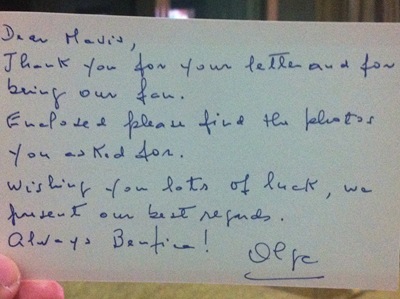 Dear Mavis,
Thank you for your letter and for
being our fan.
Enclosed please find the photos
you asked for.
Wishing you lots of luck, we
present our best regards.
Always Benfica!
Olga